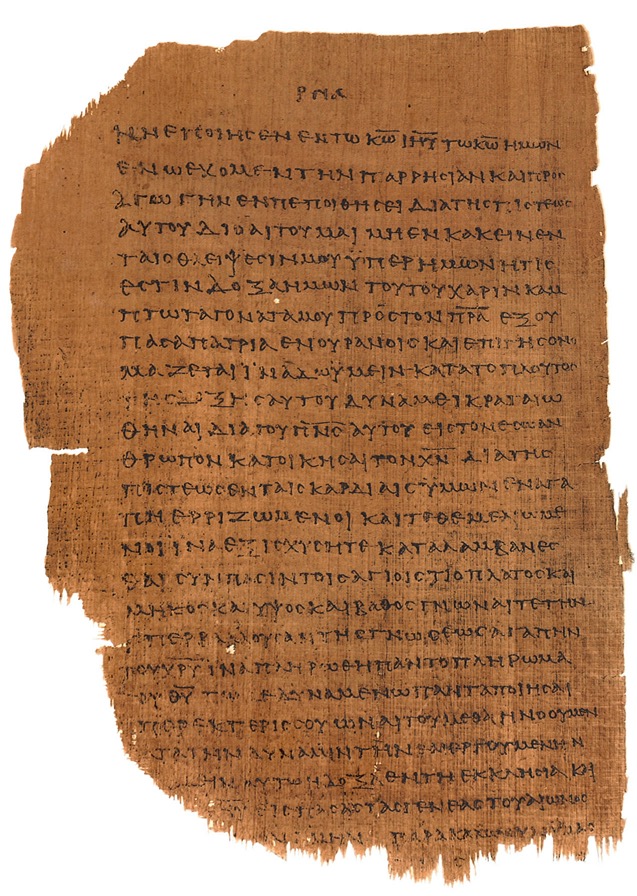 ΡΝΑ
ΗΝ ΕΠΟΙΗϹΕΝ ΕΝ ΤΩ Κ̅Ω̅ Ι̅Η̅Υ̅ ΤΩ Κ̅Ω̅ ΗΜΩΝ
ΕΝ Ω ΕΧΟΜΕΝ ΤΗΝ ΠΑΡΡΗϹΙΑΝ ΚΑΙ ΠΡΟϹ
ΑΓΩΓΗΝ ΕΝ ΠΕΠΟΙΘΗϹΕΙ ΔΙΑ ΤΗϹ ΠΙϹΤΕΩϹ
ΑΥΤΟΥ ΔΙΟ ΑΙΤΟΥΜΑΙ ΜΗ ΕΝΚΑΚΕΙΝ ΕΝ
ΤΑΙϹ ΘΛΕΙΨΕϹΙΝ ΜΟΥ ΫΠΕΡ ΗΜΩΝ ΗΤΙϹ
ΕϹΤΙΝ ΔΟΞΑ ΗΜΩΝ ΤΟΥΤΟΥ ΧΑΡΙΝ ΚΑΜ
ΠΤΩ ΤΑ ΓΟΝΑΤΑ ΜΟΥ ΠΡΟϹ ΤΟΝ Π̅Ρ̅Α̅ ΕΞ ΟΥ
ΠΑϹΑ ΠΑΤΡΙΑ ΕΝ ΟΥΡΑΝΟΙϹ ΚΑΙ ΕΠΙ ΓΗϹ ΟΝΟ
ΜΑΖΕΤΑΙ ΪΝΑ ΔΩ ΫΜΕΙΝ ΚΑΤΑ ΤΟ ΠΛΟΥΤΟϹ
ΤΗϹ ΔΟΞΗϹ ΑΥΤΟΥ ΔΥΝΑΜΕΙ ΚΡΑΤΑΙΩ
ΘΗΝΑΙ ΔΙΑ ΤΟΥ Π̅Ν̅Ϲ̅ ΑΥΤΟΥ ΕΙϹ ΤΟΝ ΕϹΩ ΑΝ
ΘΡΩΠΟΝ ΚΑΤΟΙΚΗϹΑΙ ΤΟΝ Χ̅Ν̅ ΔΙΑ ΤΗϹ
ΠΙϹΤΕΩϹ ΕΝ ΤΑΙϹ ΚΑΡΔΙΑΙϹ ΫΜΩΝ ΕΝ ΑΓΑ
ΠΗ ΕΡΡΙΖΩΜΕΝΟΙ ΚΑΙ ΤΕΘΕΜΕΛΙΩΜΕ
ΝΟΙ ΪΝΑ ΕΞΙϹΧΥϹΗΤΕ ΚΑΤΑΛΑΜΒΑΝΕϹ
ΘΑΙ ϹΥΝ ΠΑϹΙΝ ΤΟΙϹ ΑΓΙΟΙϹ ΤΙ ΤΟ ΠΛΑΤΟϹ ΚΑΙ
ΜΗΚΟϹ ΚΑΙ ΥΨΟϹ ΚΑΙ ΒΑΘΟϹ ΓΝΩΝΑΙ ΤΕ ΤΗΝ
ΥΠΕΡΒΑΛΛΟΥϹΑΝ ΤΗϹ ΓΝΩϹΕΩϹ ΑΓΑΠΗΝ
ΤΟΥ Χ̅Ρ̅Υ̅ ΪΝΑ ΠΛΗΡΩΘΗ ΠΑΝ ΤΟ ΠΛΗΡΩΜΑ
ΤΟΥ Θ̅Υ̅ ΤΩ ΔΕ ΔΥΝΑΜΕΝΩ ΠΑΝΤΑ ΠΟΙΗϹΑΙ
ΥΠΕΡΕΚΠΕΡΙϹϹΟΥ ΩΝ ΑΙΤΟΥΜΕΘΑ Η ΝΟΟΥΜΕΝ
ΚΑΤΑ ΤΗΝ ΔΥΝΑΜΙΝ ΤΗΝ ΕΝΕΡΓΟΥΜΕΝΗΝ
ΗΜΙΝ ΑΥΤΩ Η ΔΟΞΑ ΕΝ ΤΗ ΕΚΚΛΗϹΙΑ ΚΑΙ
ΕΙϹ ΠΑϹΑϹ ΤΑϹ ΓΕΝΕΑϹ ΤΟΥ ΑΙΩΝΟϹ
ΠΑΡΑΚΑΛΩ ΟΥΝ ΥΜΑϹ